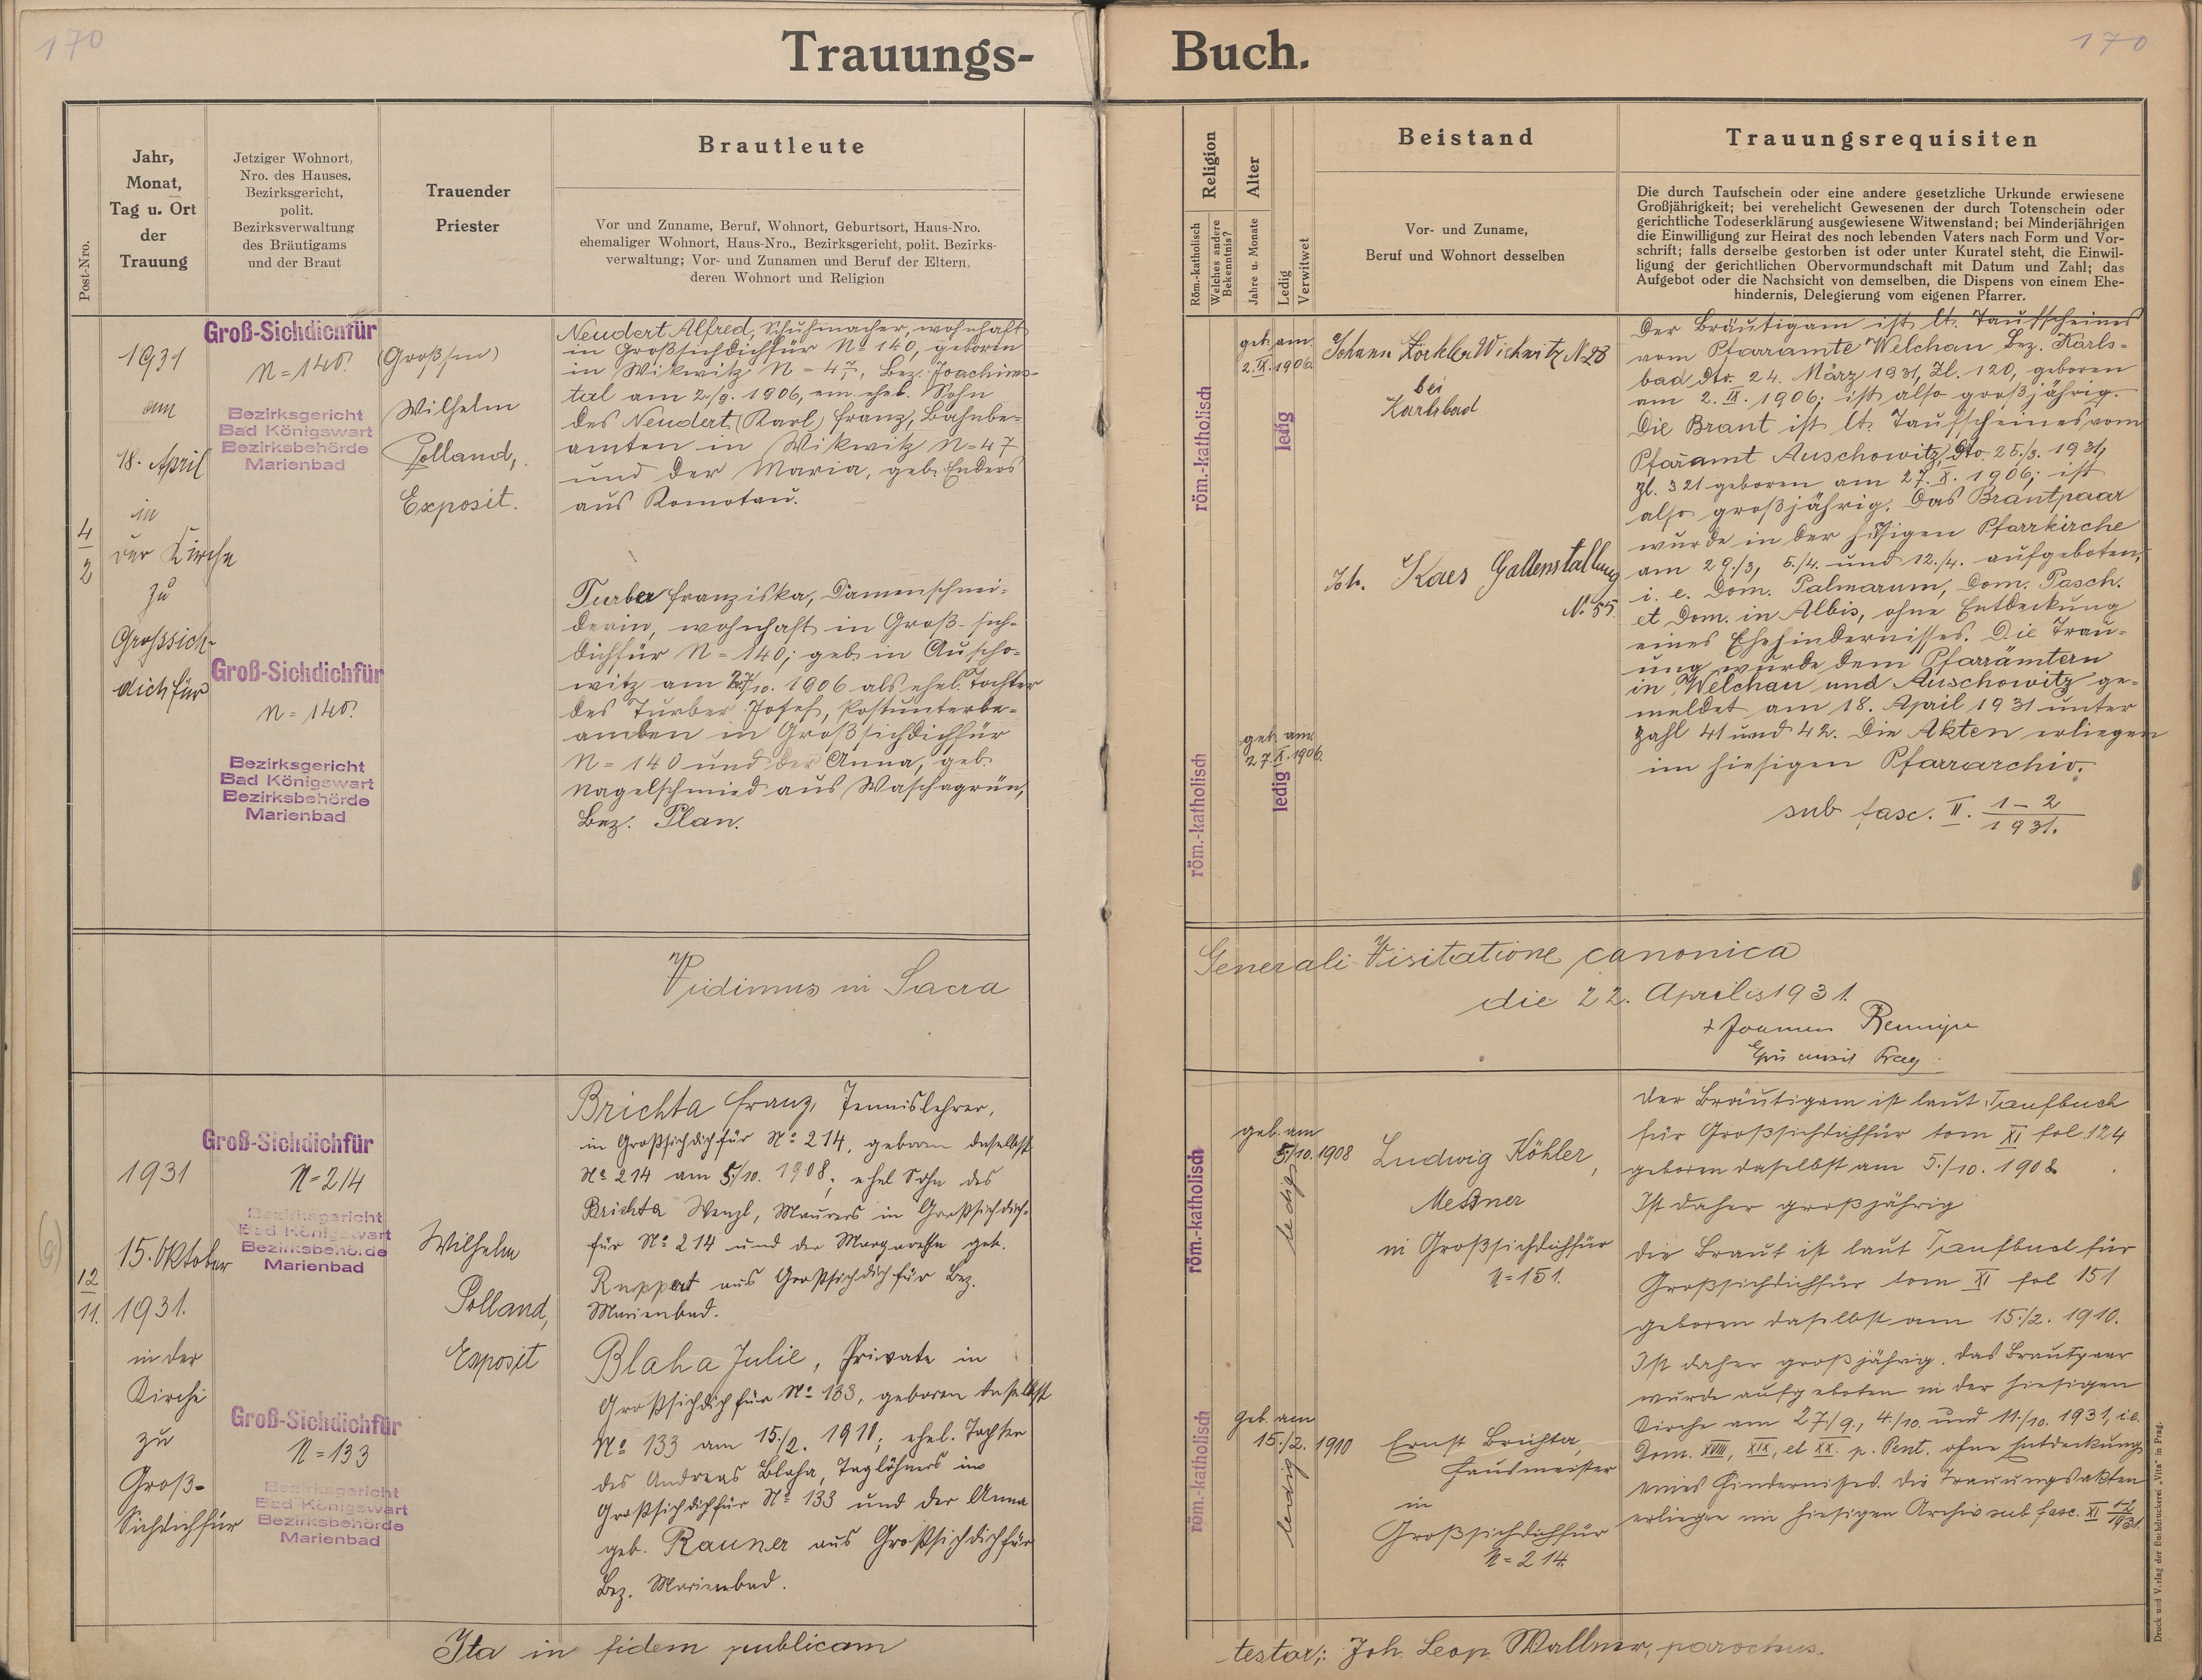 170
170
Trauungs-
Buch.
Post-Nro.
Jahr,
Monat,
Tag u. Ort
der
Trauung
Jetziger Wohnort,
Nro. des Hauses,
Bezirksgericht,
polit.
Bezirksverwaltung
des Bräutigams
und der Braut
Trauender
Priester
Brautleute
Vor und Zuname, Beruf, Wohnort, Geburtsort, Haus-Nro.
ehemaliger Wohnort, Haus-Nro., Bezirksgericht, polit. Bezirks-
verwaltung; Vor- und Zunamen und Beruf der Eltern,
deren Wohnort und Religion
Religion
Röm.-katholisch
Welches andere
Bekenntnis?
Alter
Jahre u. Monate
Ledig
Verwitwet
Beistand
Vor- und Zuname,
Beruf und Wohnort desselben
Trauungsrequisiten
Die durch Taufschein oder eine andere gesetzliche Urkunde erwiesene
Großjährigkeit; bei verehelicht Gewesenen der durch Totenschein oder
gerichtliche Todeserklärung ausgewiesene Witwenstand; bei Minderjährigen
die Einwilligung zur Heirat des noch lebenden Vaters nach Form und Vor-
schrift; falls derselbe gestorben ist oder unter Kuratel steht, die Einwil-
ligung der gerichtlichen Obervormundschaft mit Datum und Zahl; das
Aufgebot oder die Nachsicht von demselben, die Dispens von einem Ehe-
hindernis, Delegierung vom eigenen Pfarrer.
4
2
1931
am
18. April
in
der Kirche
zu
Grosssich-
dichfür
Groß-Sichdichfür
N=140.
Bezirksgericht
Bad Königswart
Bezirksbehörde
Marienbad
Groß-Sichdichfür
N=140.
Bezirksgericht
Bad Königswart
Bezirksbehörde
Marienbad
Wilhelm
Polland,
Exposit.
Neudert Alfred, Schuhmacher, wohnhaft
in Großsichdichfür No 140, geboren
in Wikwitz N=47, Bez. Joachims-
tal am 2./9. 1906, ein ehel. Sohn
des Neudert (Karl) Franz, Bahnbe-
amten in Wikwitz N=47
und der Maria, geb. Enders
aus Komotau.
Turber Franziska, Damenschnei-
derin, wohnhaft in Groß-sich-
dichfür N=140; geb. in Auscho-
witz am 27./10. 1906 als ehel. Tochter
des Turber Josef, Postunterbe-
amten in Großsichdichfür
N=140 und der Anna, geb.
Nagelschmied aus Waschagrün,
Bez. Plan.
röm.-katholisch
geb. am
2.IX.1906.
ledig
röm.-katholisch
geb. am
27.X.1906.
ledig
Johann Wickwitz N 28
bei
Karlsbad
Joh. Kaes Gallenstallung
No 55.
Der Bräutigam ist lt. Taufscheines
vom Pfarramte Welchau Bez. Karls-
bad dto. 24. März 1931, Zl. 120, geboren
am 2. IX. 1906; ist also großjährig.
Die Braut ist lt. Taufscheines vom
Pfarramt Auschowitz dto 25./3. 1931,
Zl. 321 geboren am 27. X. 1906; ist
also großjährig. Das Brautpaar
wurde in der hiesigen Pfarrkirche
am 29./3, 5./4. und 12./4. aufgeboten,
i. e. Dom. Palmarum, Dom. Pasch.
et Dom. in Albis, ohne Entdeckung
eines Ehehindernisses. Die Trau-
ung wurde dem Pfarrämtern
in Welchau und Auschowitz ge-
meldet am 18. April 1931 unter
Zahl 41 und 42. Die Akten erliegen
im hiesigen Pfarrarchiv.
sub fasc. II. 1-2
1931.
Vidimus in Sacra
Generali Visitatione canonica
die 22. Aprilis 1931.
12
11.
1931
15. Oktober
1931.
in der
Kirche
zu
Groß-
Sichdichfür
Groß-Sichdichfür
N=214
Bezirksgericht
Bad Königswart
Bezirksbehörde
Marienbad
Groß-Sichdichfür
N=133
Bezirksgericht
Bad Königswart
Bezirksbehörde
Marienbad
Wilhelm
Polland,
Exposit
Brichta Franz, Tennislehrer,
in Großsichdichfür No 214, geboren daselbst
No 214 am 5./10. 1908; ehel Sohn des
Brichta Wenzl, Maurers in Großsichdich-
für No 214 und der Margarethe geb.
Ruppert aus Großsichdichfür Bez.
Marienbad.
Blaha Julie, Private in
Großsichdichfür No 133, geboren daselbst
No 133 am 15./2. 1910; ehel. Tochter
des Andreas Blaha, Taglöhners in
Großsichdichfür No 133 und der Anna
geb. Rauner aus Großsichdichfür
Bez. Marienbad.
röm.-katholisch
geb. am
5./10. 1908
ledig
röm.-katholisch
geb. am
15./2. 1910
ledig
Ludwig Köhler,
Meßner
in Großsichdichfür
N=151.
Ernst Brichta,
Hausmeister
in
Großsichdichfür
N=214
Der Bräutigam ist laut Taufbuch
für Großsichdichfür tom XI fol. 124
geboren daselbst am 5./10. 1908.
Ist daher großjährig
Die Braut ist laut Taufbuch für
Großsichdichfür tom XI fol 151
geboren daselbst am 15./2. 1910.
Ist daher großjährig. Das Brautpaar
wurde aufgeboten in der hiesigen
Kirche am 27./9., 4./10. und 11./10. 1931, i.e.
Dom. XVIII, XIX, et XX. p. Pent. ohne Entdeckung
eines Hindernisses. Die Trauungsakten
erliegen im hiesigen Archiv sub fasc. XI 1-2
1931.
Ita in fidem publicam
testor: Joh. Leop. Wallner, parochus.
Druck und Verlag der Buchdruckerei „Vita" in Prag.